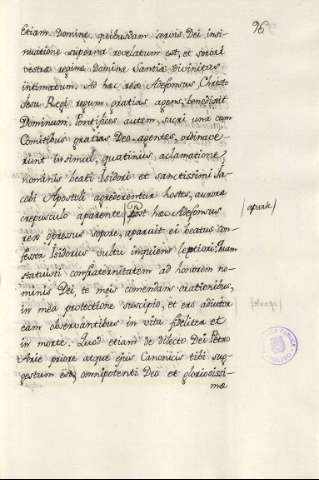 96
Etiam Domine, quibusdam servis Dei insi-
nuatione superna revelatum est, et sorori
vestræ reginæ Domine Santiæ divinitus
intimatum. Ad hæc rex Adefonsus, Christo
Iesu Regi regum gratias agens, benedixit
Dominum. Pontifices autem, sacri una cum
Comitibus gratias Deo agentes, ordinave-
runt insimul, quatinus, aclamatione
nominis beati Isidori et sanctissimi Ja-
cobi Apostoli agrederentur hostes, aurore
crepusculo aparente. Post hæc Adefonsus
rex opressus sopore, aparuit ei beatus con-
fessor Isidorus vultu inquiens leptiori: Quam
statuisti confraternitatem ad honorem no-
minis Dei, te meis comendans orationibus,
in mea protectione suscipio, et ero adiutor
eam observantibus in vita fideliter et
in morte. Quod etiam de dilecto Dei Petro
Ariæ priore atque ejus Canonicis tibi sug-
gestum est, omnipotenti Deo et gloriosissi-
mæ
| apark |